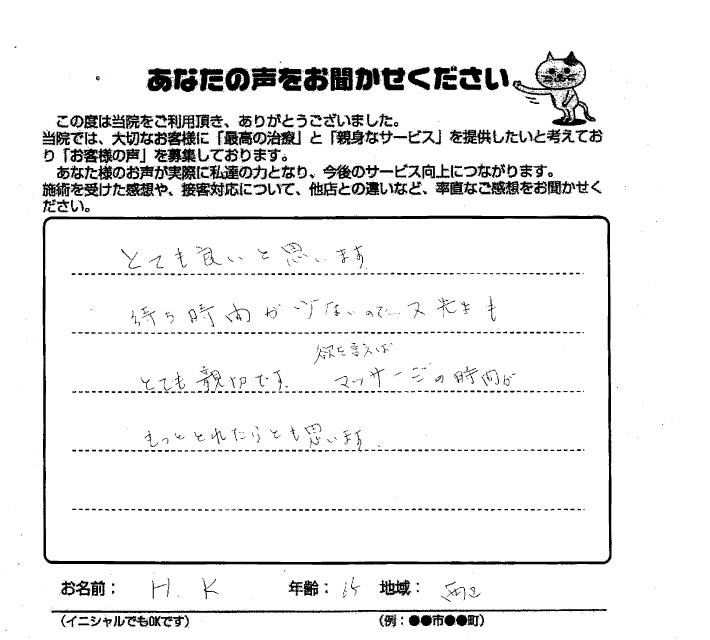 あなたの声をお聞かせください
この度は当院をご利用頂き、ありがとうございました。
当院では、大切なお客様に「最高の治療」と「親身なサービス」を提供したいと考えてお
り「お客様の声」を募集しております。
あなた様のお声が実際に私達の力となり、今後のサービス向上につながります。
施術を受けた感想や、接客対応について、他店との違いなど、率直なご感想をお聞かせく
ださい。
とても良いと思います
待ち時間が少ないので… 又先生も
欲を言えば
とても親切です。 マッサージの時間が
もっととれたらとも思います。
お名前： H. K 年齢： 地域：
（イニシャルでもOKです） （例：●●市●●町）